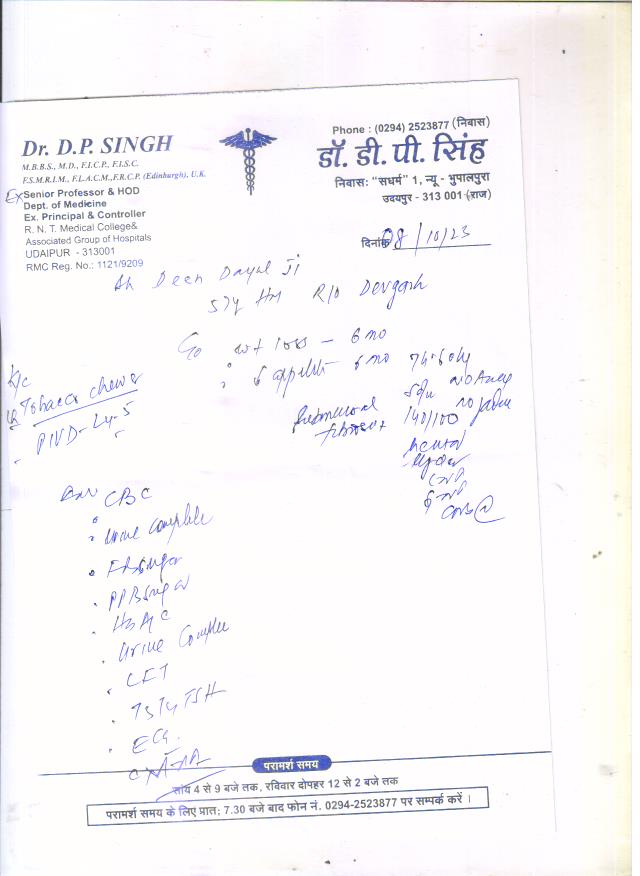 Dr. D.P. SINGH
M.B.B.S., M.D., F.I.C.P., F.I.S.C.
F.S.M.R.I.M., F.L.A.C.M.,F.R.C.P. (Edinburgh), U.K.
Ex Senior Professor & HOD
Dept. of Medicine
Ex. Principal & Controller
R. N. T. Medical College&
Associated Group of Hospitals
UDAIPUR - 313001
RMC Reg. No.: 1121/9209
Phone : (0294) 2523877 (निवास)
डॉ. डी. पी. सिंह
निवास: "सधर्म" 1, न्यू - भुपालपुरा
उदयपुर - 313 001 (राज)
दिनांक 08/10/23
Deen Dayal Ji
57y R/o Devgarh
wt loss - 6 mo
6 mo
K/c
Tobacco chewer
PIVD - L4-5
140/100
CBC
Urine complete
PPBSugar
HbA1C
Urine Complete
LFT
T3 T4 TSH
ECG
परामर्श समय
सांय 4 से 9 बजे तक, रविवार दोपहर 12 से 2 बजे तक
परामर्श समय के लिए प्रात: 7.30 बजे बाद फोन नं. 0294-2523877 पर सम्पर्क करें ।